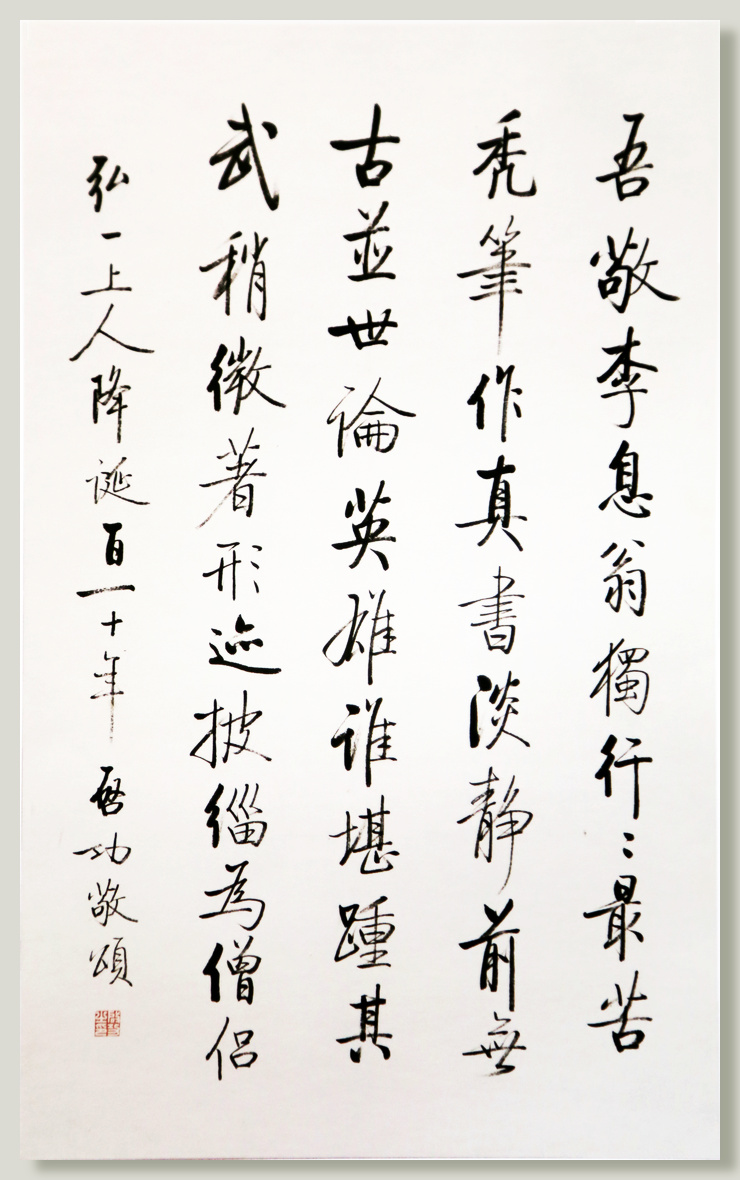 吾敬李息翁獨行〻最苦
禿筆作真書淡静前無
古並世論英雄谁堪踵其
武稍微著形迹披緇為僧侣
弘一上人降誕百一十年 啓功敬頌